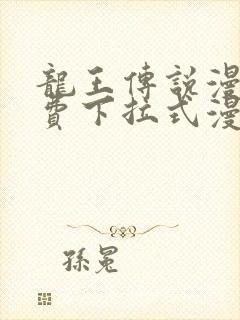 龍王傳說漫
費下拉式漫
孫冕